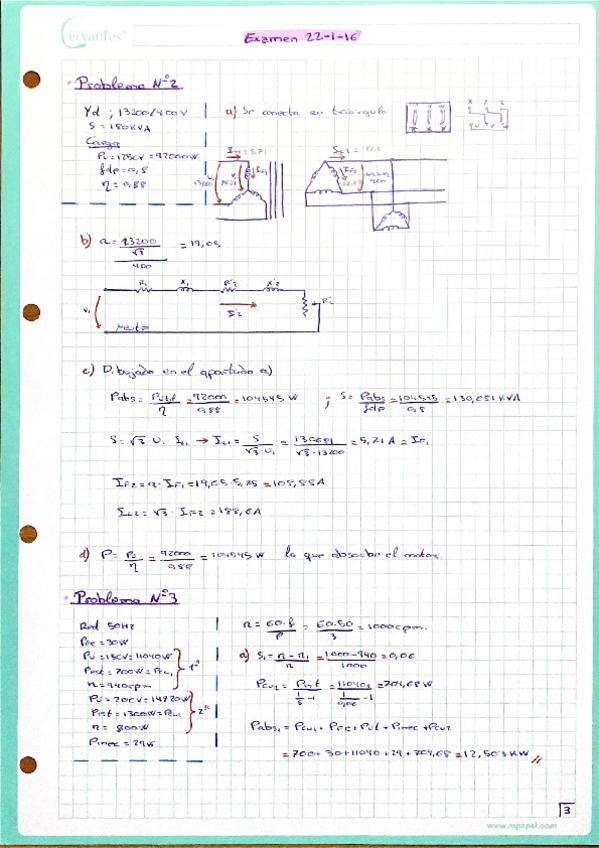 Cervantes
Examen 22-1-16
Problema Nº2
Yd ; 13200/400V
S = 180KVA
Carga
Pu = 125CV = 92000W
fdp = 0,8
η = 0,88
a) Se conecta en triangulo
b) a = 13200/√3 / 400 = 19,05
R1 X1 R'2 X'2
I'2
V1
Neutro
c) Dibujado en el apartado a)
Pabs = Putil/η = 92000/0,88 = 104545 W ; S = Pabs/fdp = 104545/0,8 = 130,681 KVA
S = √3 · U1 · IL1 → IL1 = S/√3·U1 = 130681/√3·13200 = 5,71 A = IF1
IF2 = a · IF1 = 19,05 · 5,71 = 108,88A
IL2 = √3 · IF2 = 188,6A
d) P = Pu/η = 92000/0,88 = 104545 W lo que absorbe el motor.
Problema Nº3
Red 50Hz
PFe = 30W
Pu = 15CV = 11040W
Pest = 700W = Pcu1
n = 940rpm
1º
Pu = 20CV = 14720W
Pest = 1300W = Pcu1
n = 800W
2º
Pmec = 29W
n = 60·f/P = 60·50/3 = 1000rpm.
a) S1 = n - n1/n = 1000-940/1000 = 0,06
Pabs1 = Pcu1 + PFe + Put + Pmec + Pcu2
= 700 + 30 + 11040 + 29 + 704,68 = 12,503 KW
3
www.mpapel.com